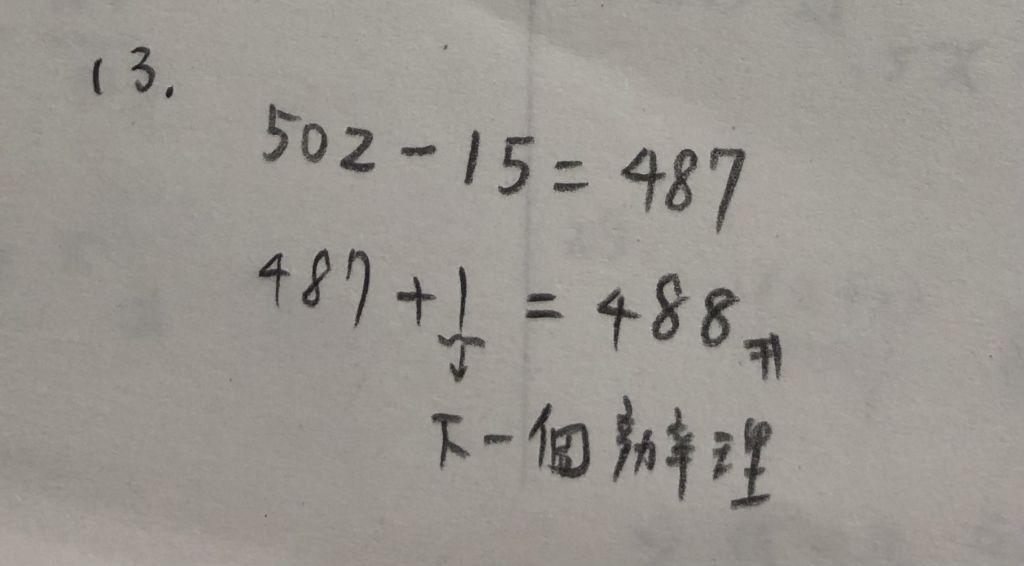 13.
502-15=487
487+1=488개
↓
下一個辦理